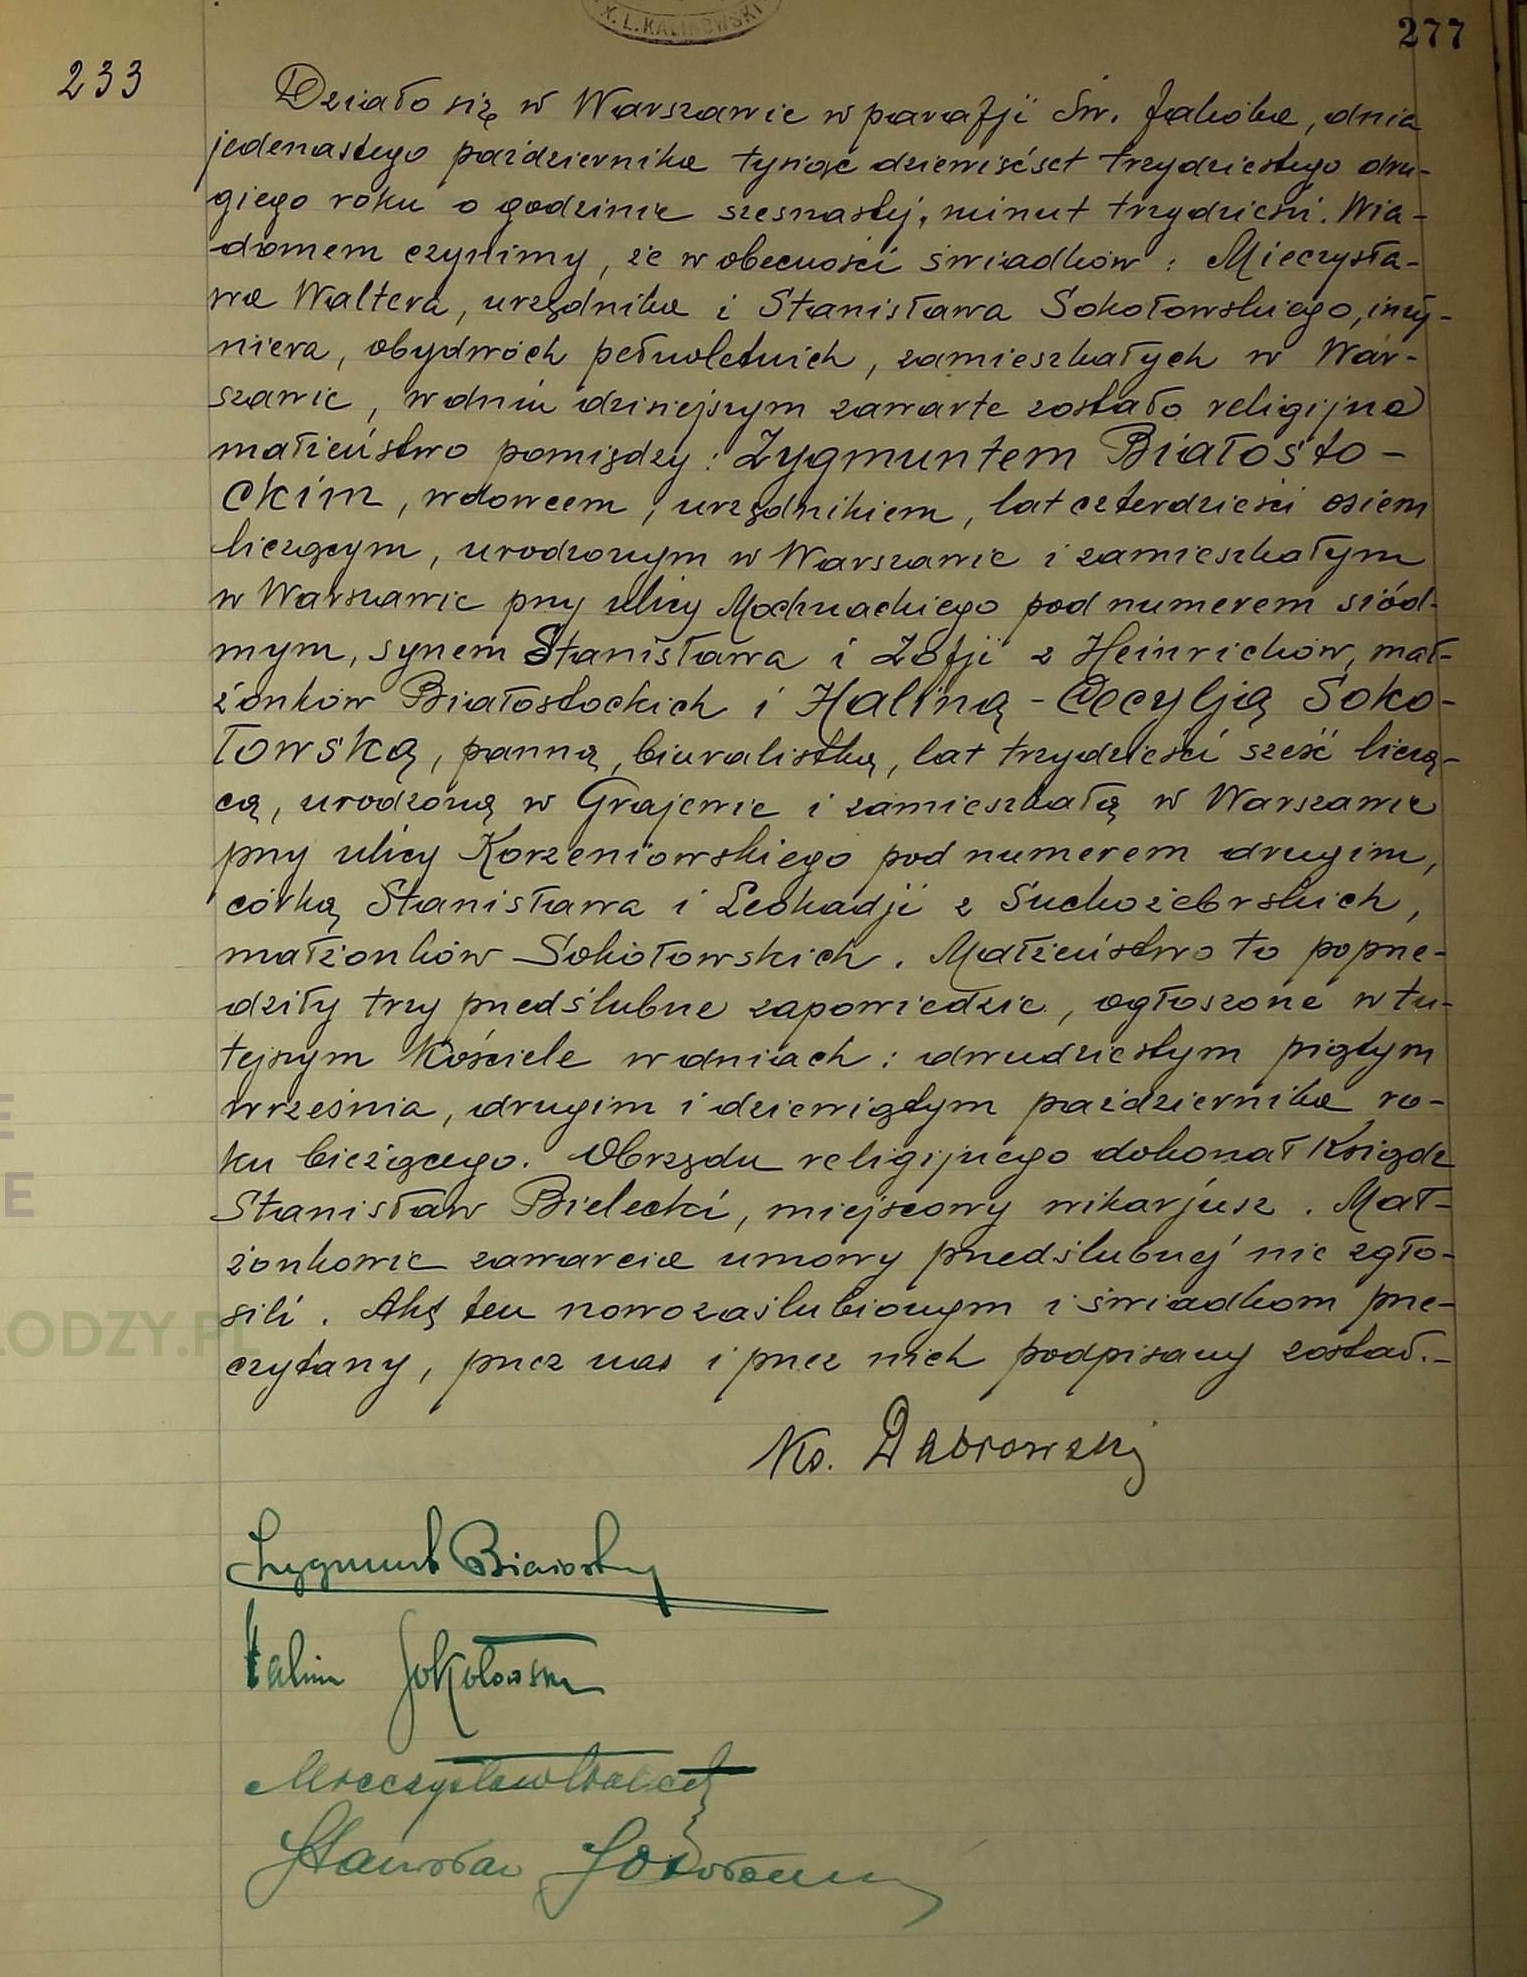 X. L. KALINOWSKI
277
233
Działo się w Warszawie w parafji Św. Jakóba, dnia
jedenastego października tysiąc dziewięćset trzydziestego dru-
giego roku o godzinie szesnastej, minut trzydzieści. Wia-
domem czynimy, że w obecności świadków: Mieczysła-
wa Waltera, urzędnika i Stanisława Sokołowskiego, inży-
niera, obydwóch pełnoletnich, zamieszkałych w War-
szawie, w dniu dzisiejszym zawarte zostało religijne
małżeństwo pomiędzy: Zygmuntem Białosto-
ckim, wdowcem, urzędnikiem, lat czterdzieści osiem
liczącym, urodzonym w Warszawie i zamieszkałym
w Warszawie przy ulicy Mochnackiego pod numerem siód-
mym, synem Stanisława i Zofji z Heinrichów, mał-
żonków Białostockich i Haliną-Cecylją Soko-
łowską, panną, biuralistką, lat trzydzieści sześć liczą-
cą, urodzoną w Grajewie i zamieszkałą w Warszawie
przy ulicy Korzeniowskiego pod numerem drugim,
córką Stanisława i Leokadji z Suchożebrskich,
małżonków Sokołowskich. Małżeństwo to poprze-
dziły trzy przedślubne zapowiedzie, ogłoszone w tu-
tejszym Kościele w dniach: dwudziestym piątym
września, drugim i dziewiątym października ro-
ku bieżącego. Obrzędu religijnego dokonał Ksiądz
Stanisław Bielecki, miejscowy wikarjusz. Mał-
żonkowie zawarcia umowy przedślubnej nie zgło-
sili. Akt ten nowozaślubionym i świadkom prze-
czytany, przez nas i przez nich podpisany został.-
Ks. Dąbrowski
Zygmunt Białostocki
Halina Sokołowska
Mieczysław Walter
Stanisław Sokołowski
E
E
ŁODZY.PL